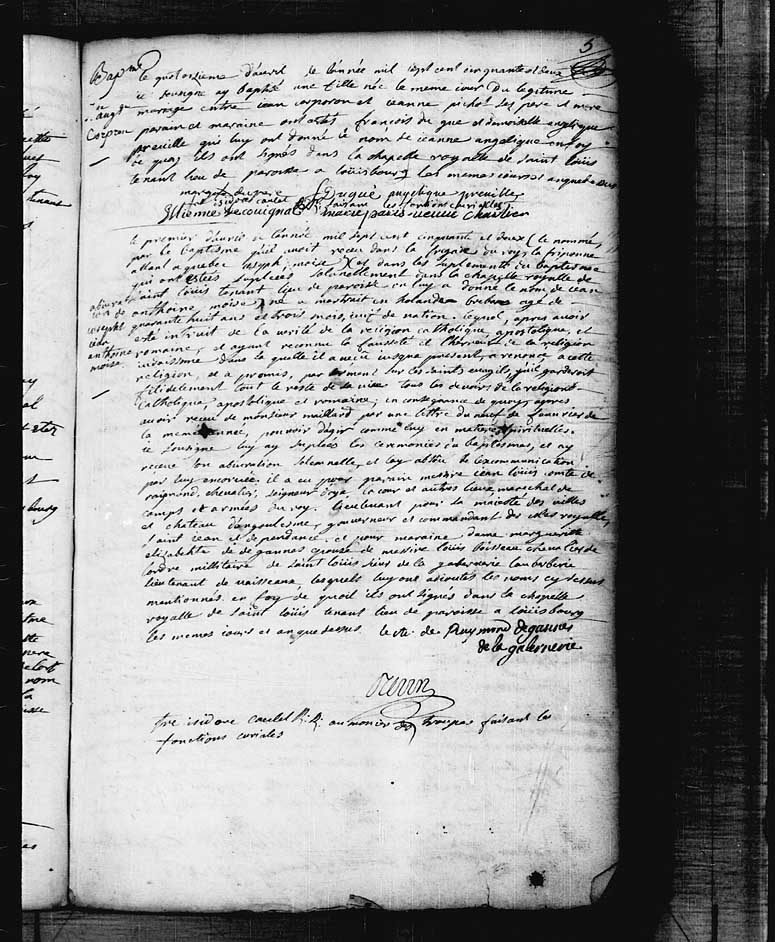 5
Bap^me
le quatorzieme d'avril de l'année mil sept cent cinquante et deux
je sousigné ay baptisé une fille née le meme jour du legitime
mariage entre jean corporon et jeanne pichot ses pere et mere
parain et maraine ont estés francois du gue et demoiselle angelique
preuille qui luy ont donné le nom de jeanne angelique en foy
de quoy ils ont signés dans la chapelle royalle de saint louis
tenant lieu de paroisse a louisbourg les memes jours et an que dessus
Dugué angelique preuille
fre isidore caulet faisant les fonctions curialles
Etienne decouagne marie paris veuve Chartier
abjuration de
joseph
jean
anthoine
moise
le premier d'avril de l'année mil sept cent cinquante et deux (le nommé,
par le baptisme qu'il avoit receu dans la fregate du roy la friponne
allant a quebec joseph moise) et dans les suplements du baptesme
qui ont estées supleées solennellement dans la chapelle royalle de
saint louis tenant lieu de paroisse on luy a donné le nom de jean
anthoine moise, né a mastrait en holande agé de
quarante huit ans et trois mois, juif de nation. lequel, apres avoir
esté instruit de la verité de la religion catholique, apostolique, et
romaine, et ayant reconnu la fausseté et l'erreur de la religion
judaisme dans la quelle il a vecu jusqua present, a renoncé a cette
religion, et a promis, par serment sur les saints evangils, quil garderoit
fidelement tout le reste de sa vie tous les devoirs de la religion
catholique, apostolique et romaine; en consequance de quoy, apres
avoir receu de monsieur maillard par une lettre du neuf de fevrier de
la meme année, pouvoir d'agir comme luy en matieres spirituelles.
je sousigné luy ay suplées les ceremonies du baptesmes, et ay
receue son abjuration solemnelle, et lay absous de lexcommunication
par luy encorue. il a eu pour parain messire jean louis comte de
raimond, chevalier, seigneur d'oye, la cour et autres lieux marechal de
camps et armées du roy. lieutenant pour sa majesté des villes
et chateau dangoulesme, gouverneur et commandant des isles royalle,
saint jean et dependance. et pour maraine, dame marguerite
elisabethe de degannes epouse de messire louis loiseau chevalier de
lordre militaire de saint louis sieur de la gabernerie
lieutenant de vaisseaux, lesquels luy ont adjoutés les noms cy dessus
mentionnés. en foy de quoi ils ont signés dans la chapelle
royalle de saint louis tenant lieu de paroisse a louisbourg
les memes jours et an que dessus. le cte. de Raymond degannes
de la gabernerie
fre isidore caulet R.R. aumonier des troupes faisant les
fonctions curiales